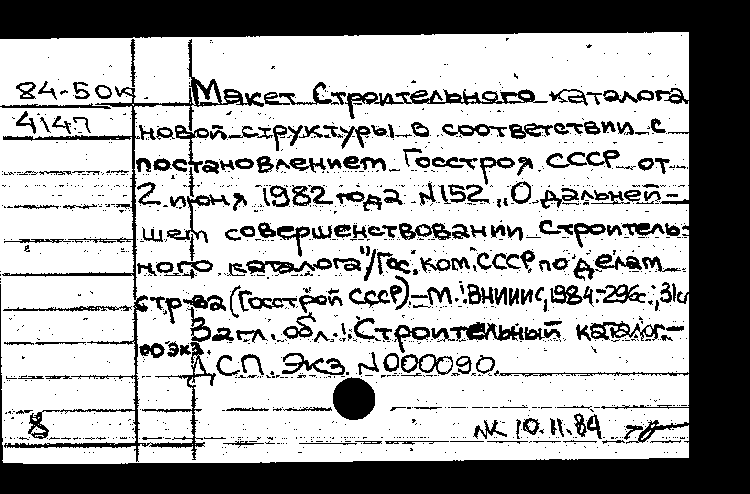 84-50к Макет Строительного каталога
4147 новой структуры в соответствии с
постановлением Госстроя СССР от
2 июня 1982 года N152 „О дальней-
шем совершенствовании Строитель-
ного каталога"/Гос. ком. СССР по делам
стр-ва (Госстрой СССР).-М.:ВНИИИС,1984.-296с.;31см
Загл. обл.: Строительный каталог.-
00 экз.
ДСП. Экз. N000090.
8 NK 10.11.84